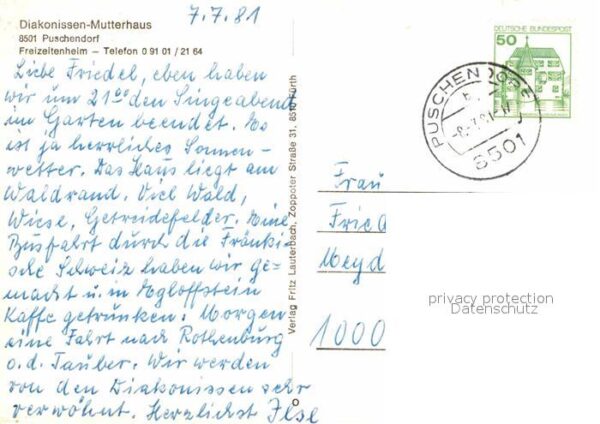 7.7.81
Diakonissen-Mutterhaus
8501 Puschendorf
Freizeitenheim – Telefon 0 91 01 / 21 64
Liebe Friedel, eben haben
wir um 21⁰⁰ den Singeabend
im Garten beendet. Es
ist ja herrliches Sonnen-
wetter. Das Haus liegt am
Waldrand. Viel Wald,
Wiese, Getreidefelder. Eine
Busfahrt durch die Fränki-
sche Schweiz haben wir ge-
macht u. in Egloffstein
Kaffe getrunken. Morgen
eine Fahrt nach Rothenburg
o.d. Tauber. Wir werden
von den Diakonissen sehr
verwöhnt. Herzlichst Ilse
Verlag Fritz Lauterbach, Zoppoter Straße 31, 8510 Fürth
DEUTSCHE BUNDESPOST
50
PUSCHENDORF
8501
Frau
Fried
Meyd
1000
privacy protection
Datenschutz